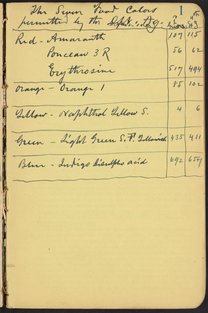 The Seven Food Colors 1
permitted by the Dept. Ag.
Red - Amaranth 107 115
Ponceau 3 R 56 62
Erythrosine 517 494
Orange - Orange 1 85 102
Yellow - Naphthol Yellow S. 4 6
Green - Light Green S.F. Yellowish 435 411
Blue - Indigo disulpho acid 692 659